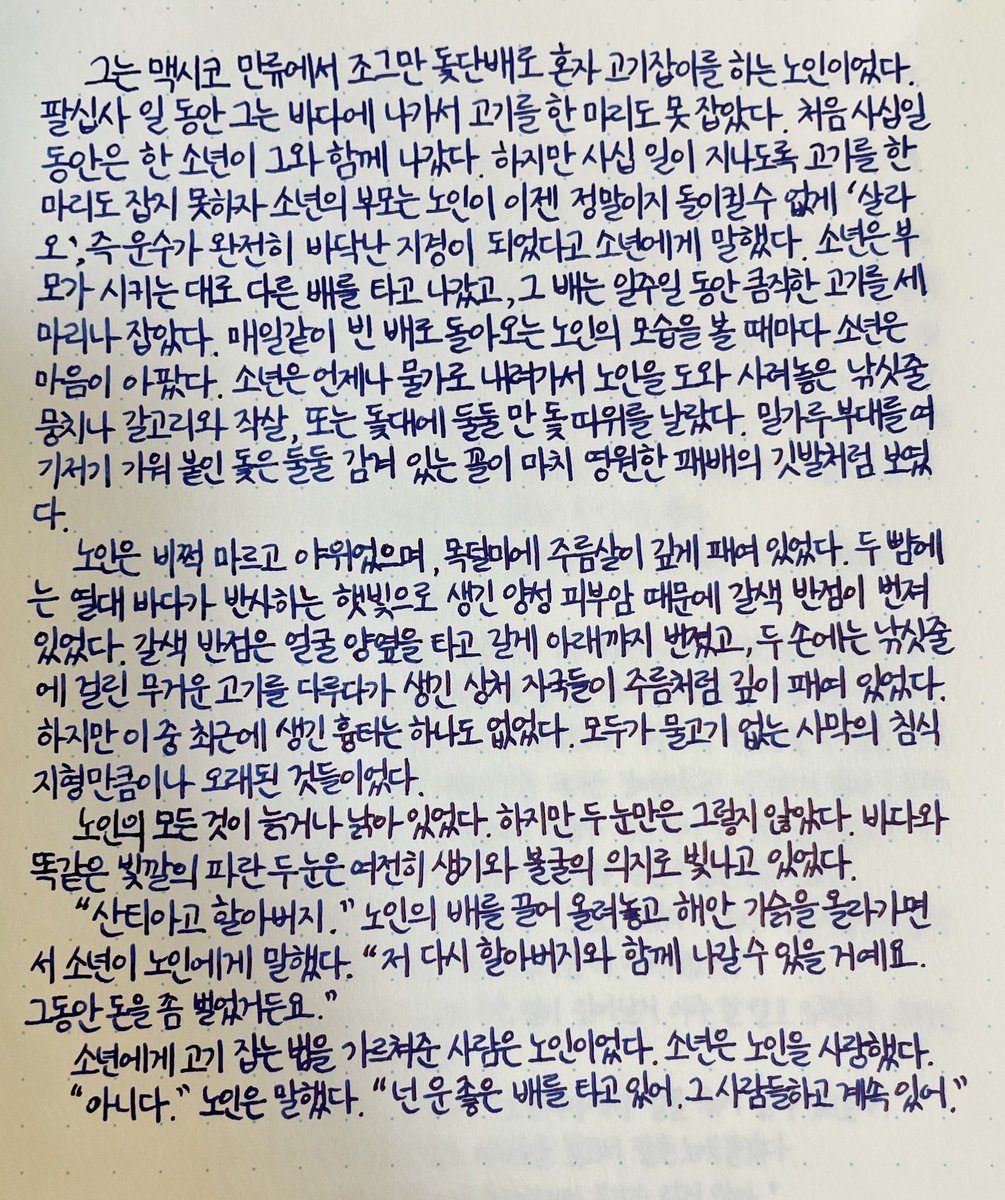 그는 맥시코 만류에서 조그만 돛단배로 혼자 고기잡이를 하는 노인이었다.
팔십사 일 동안 그는 바다에 나가서 고기를 한 마리도 못 잡았다. 처음 사십일
동안은 한 소년이 그와 함께 나갔다. 하지만 사십 일이 지나도록 고기를 한
마리도 잡지 못하자 소년의 부모는 노인이 이젠 정말이지 돌이킬 수 없게 ‘살라
오’, 즉 운수가 완전히 바닥난 지경이 되었다고 소년에게 말했다. 소년은 부
모가 시키는 대로 다른 배를 타고 나갔고, 그 배는 일주일 동안 큼직한 고기를 세
마리나 잡았다. 매일같이 빈 배로 돌아오는 노인의 모습을 볼 때마다 소년은
마음이 아팠다. 소년은 언제나 물가로 내려가서 노인을 도와 사려놓은 낚싯줄
뭉치나 갈고리와 작살, 또는 돛대에 둘둘 만 돛 따위를 날랐다. 밀가루 부대를 여
기저기 기워 붙인 돛은 둘둘 감겨 있는 꼴이 마치 영원한 패배의 깃발처럼 보였
다.
노인은 비쩍 마르고 야위었으며, 목덜미에 주름살이 깊게 패여 있었다. 두 뺨에
는 열대 바다가 반사하는 햇빛으로 생긴 양성 피부암 때문에 갈색 반점이 번져
있었다. 갈색 반점은 얼굴 양옆을 타고 길게 아래까지 번졌고, 두 손에는 낚싯줄
에 걸린 무거운 고기를 다루다가 생긴 상처 자국들이 주름처럼 깊이 패여 있었다.
하지만 이 중 최근에 생긴 흉터는 하나도 없었다. 모두가 물고기 없는 사막의 침식
지형만큼이나 오래된 것들이었다.
노인의 모든 것이 늙거나 낡아 있었다. 하지만 두 눈만은 그렇지 않았다. 바다와
똑같은 빛깔의 파란 두 눈은 여전히 생기와 불굴의 의지로 빛나고 있었다.
“산티아고 할아버지.” 노인의 배를 끌어 올려놓고 해안 기슭을 올라가면
서 소년이 노인에게 말했다. “저 다시 할아버지와 함께 나갈 수 있을 거예요.
그동안 돈을 좀 벌었거든요.”
소년에게 고기 잡는 법을 가르쳐준 사람은 노인이었다. 소년은 노인을 사랑했다.
“아니다.” 노인은 말했다. “넌 운 좋은 배를 타고 있어. 그 사람들하고 계속 있어.”